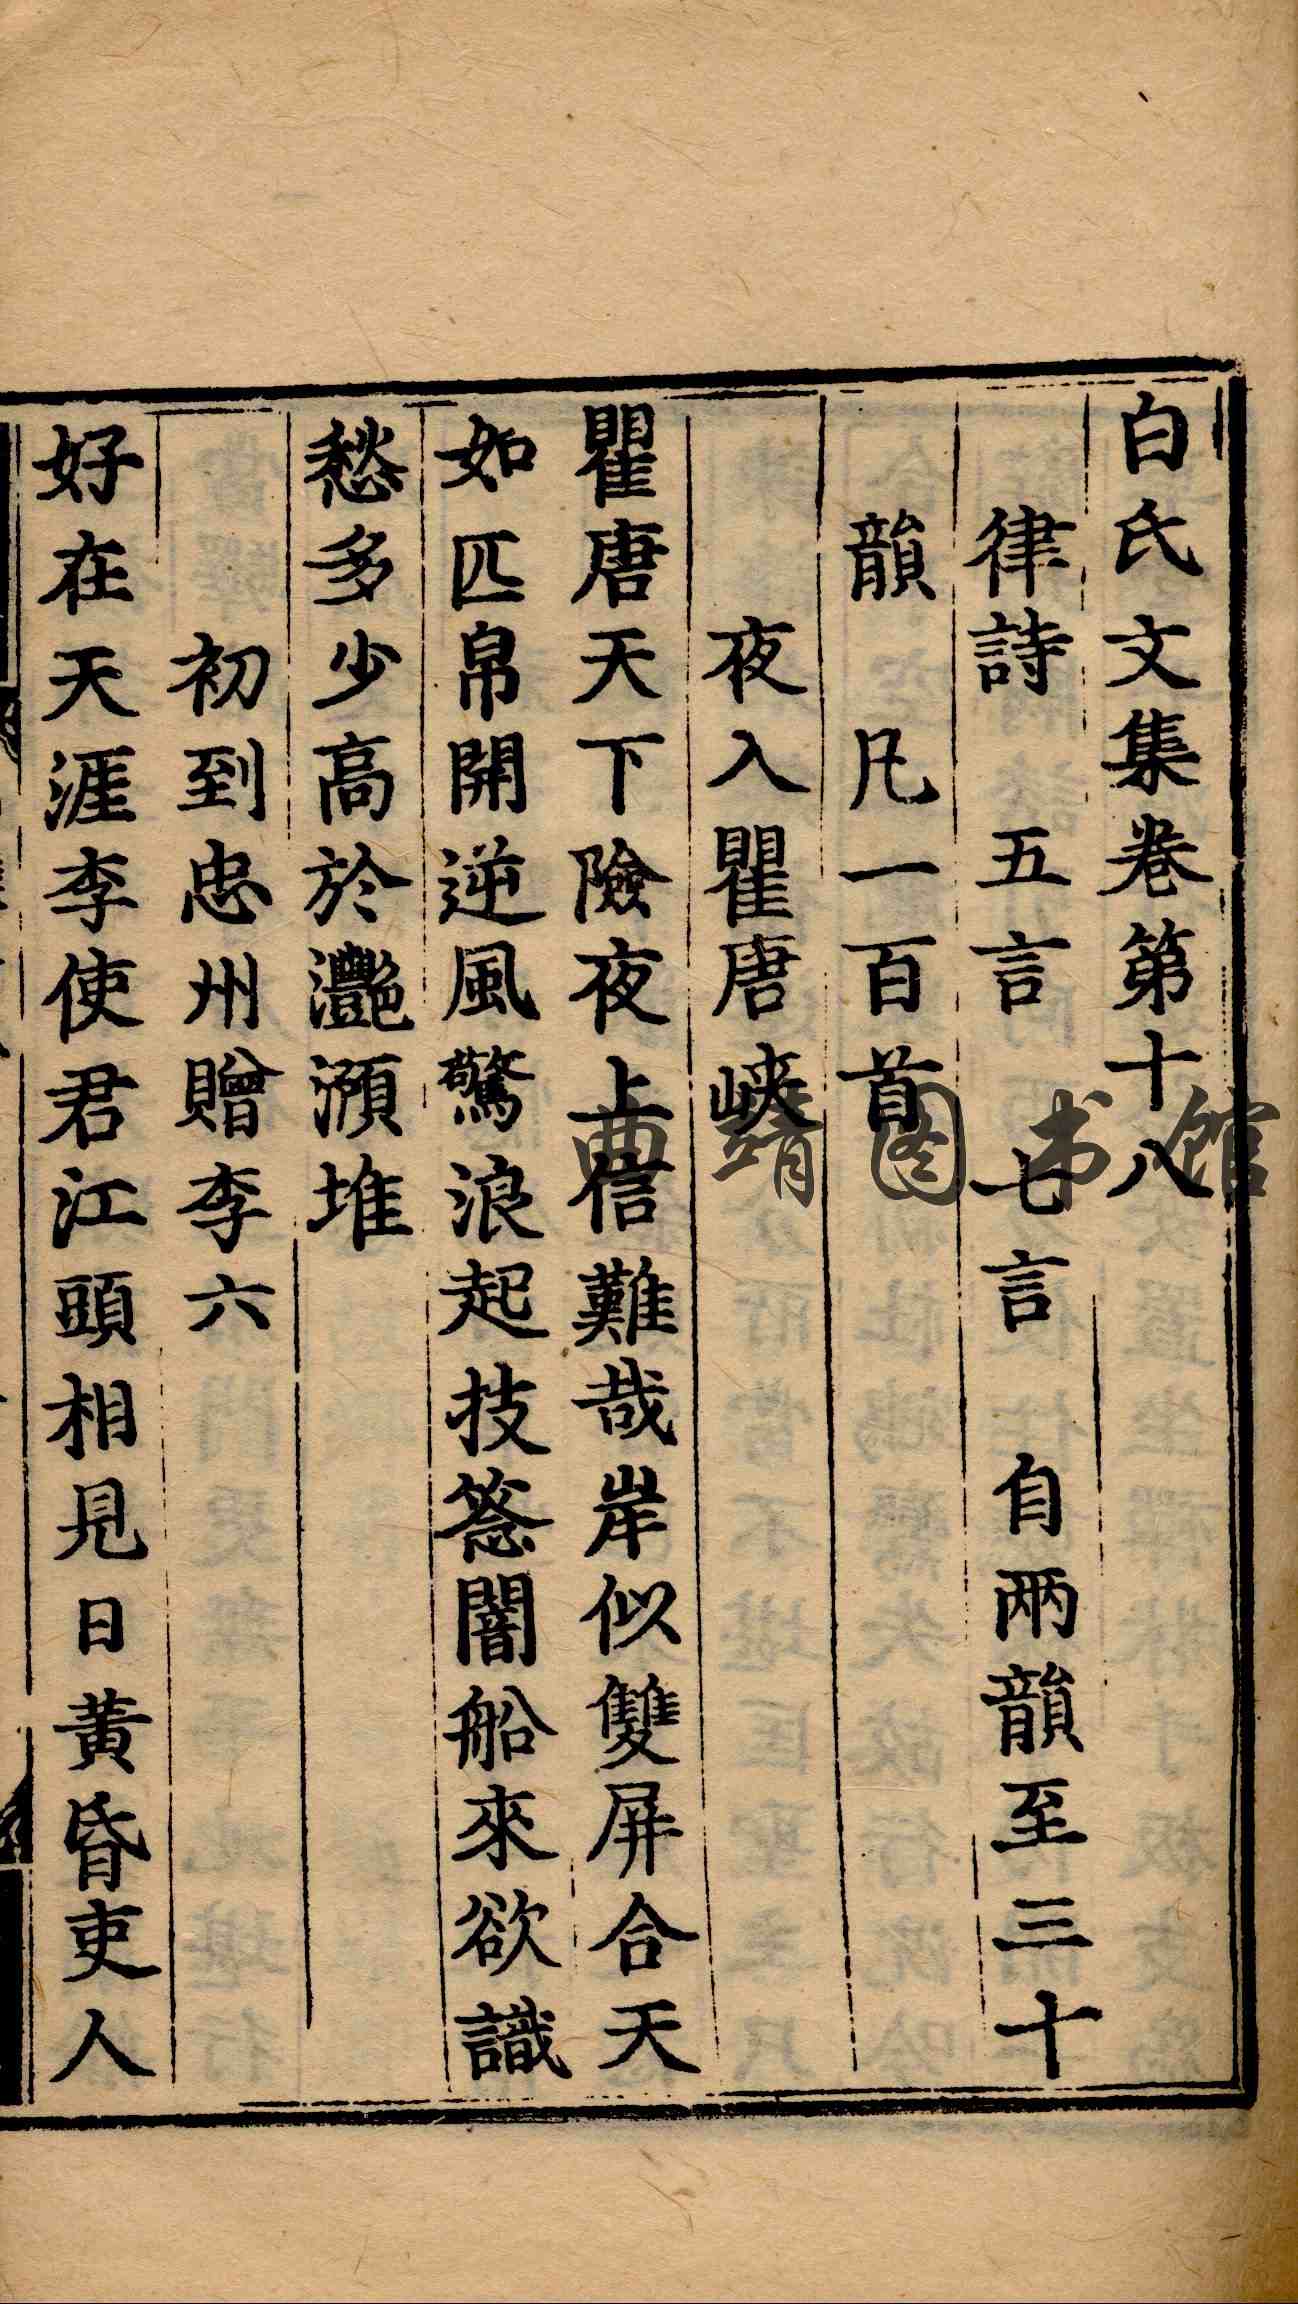 白氏文集卷第十八
律詩　五言　七言　自兩韻至三十
韻　凡一百首
夜入瞿唐峽
瞿唐天下險夜上信難哉岸似雙屏合天
如匹帛開逆風驚浪起技簽闇船來欲識
愁多少高於灧澦堆
初到忠州贈李六
好在天涯李使君江頭相見日黃昏吏人
曲靖图书馆